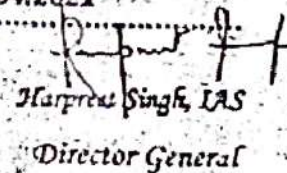 Harpreet Singh, IAS
Director General